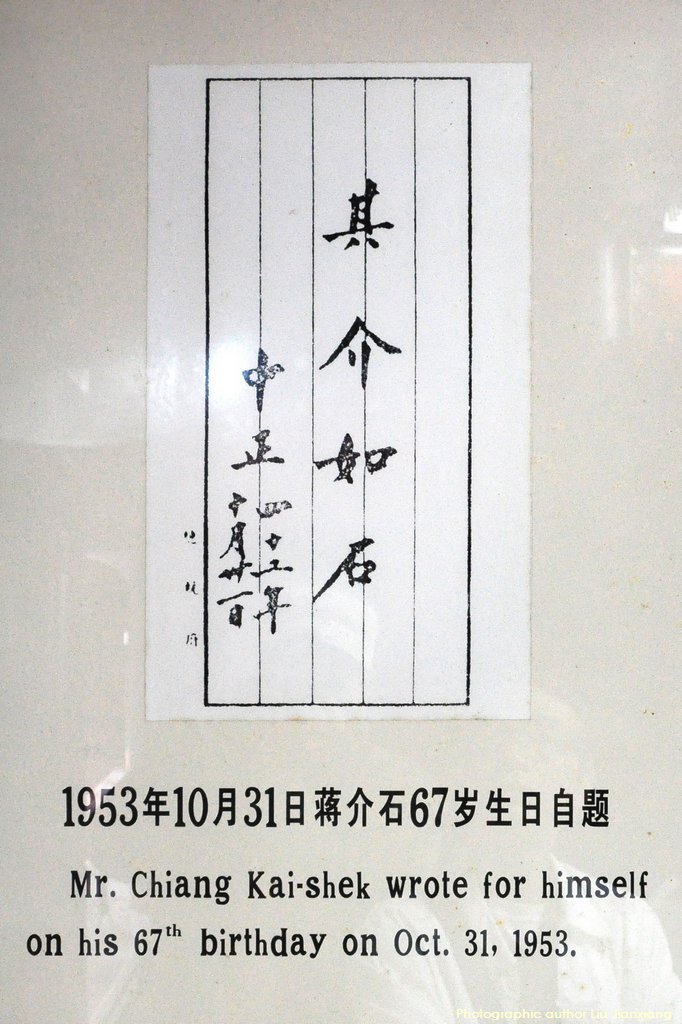 其介如石
中正
四十二年
十月卅一日
1953年10月31日蒋介石67岁生日自题
Mr. Chiang Kai-shek wrote for himself
on his 67th birthday on Oct. 31, 1953.
Photographic author Liu Jianxiang